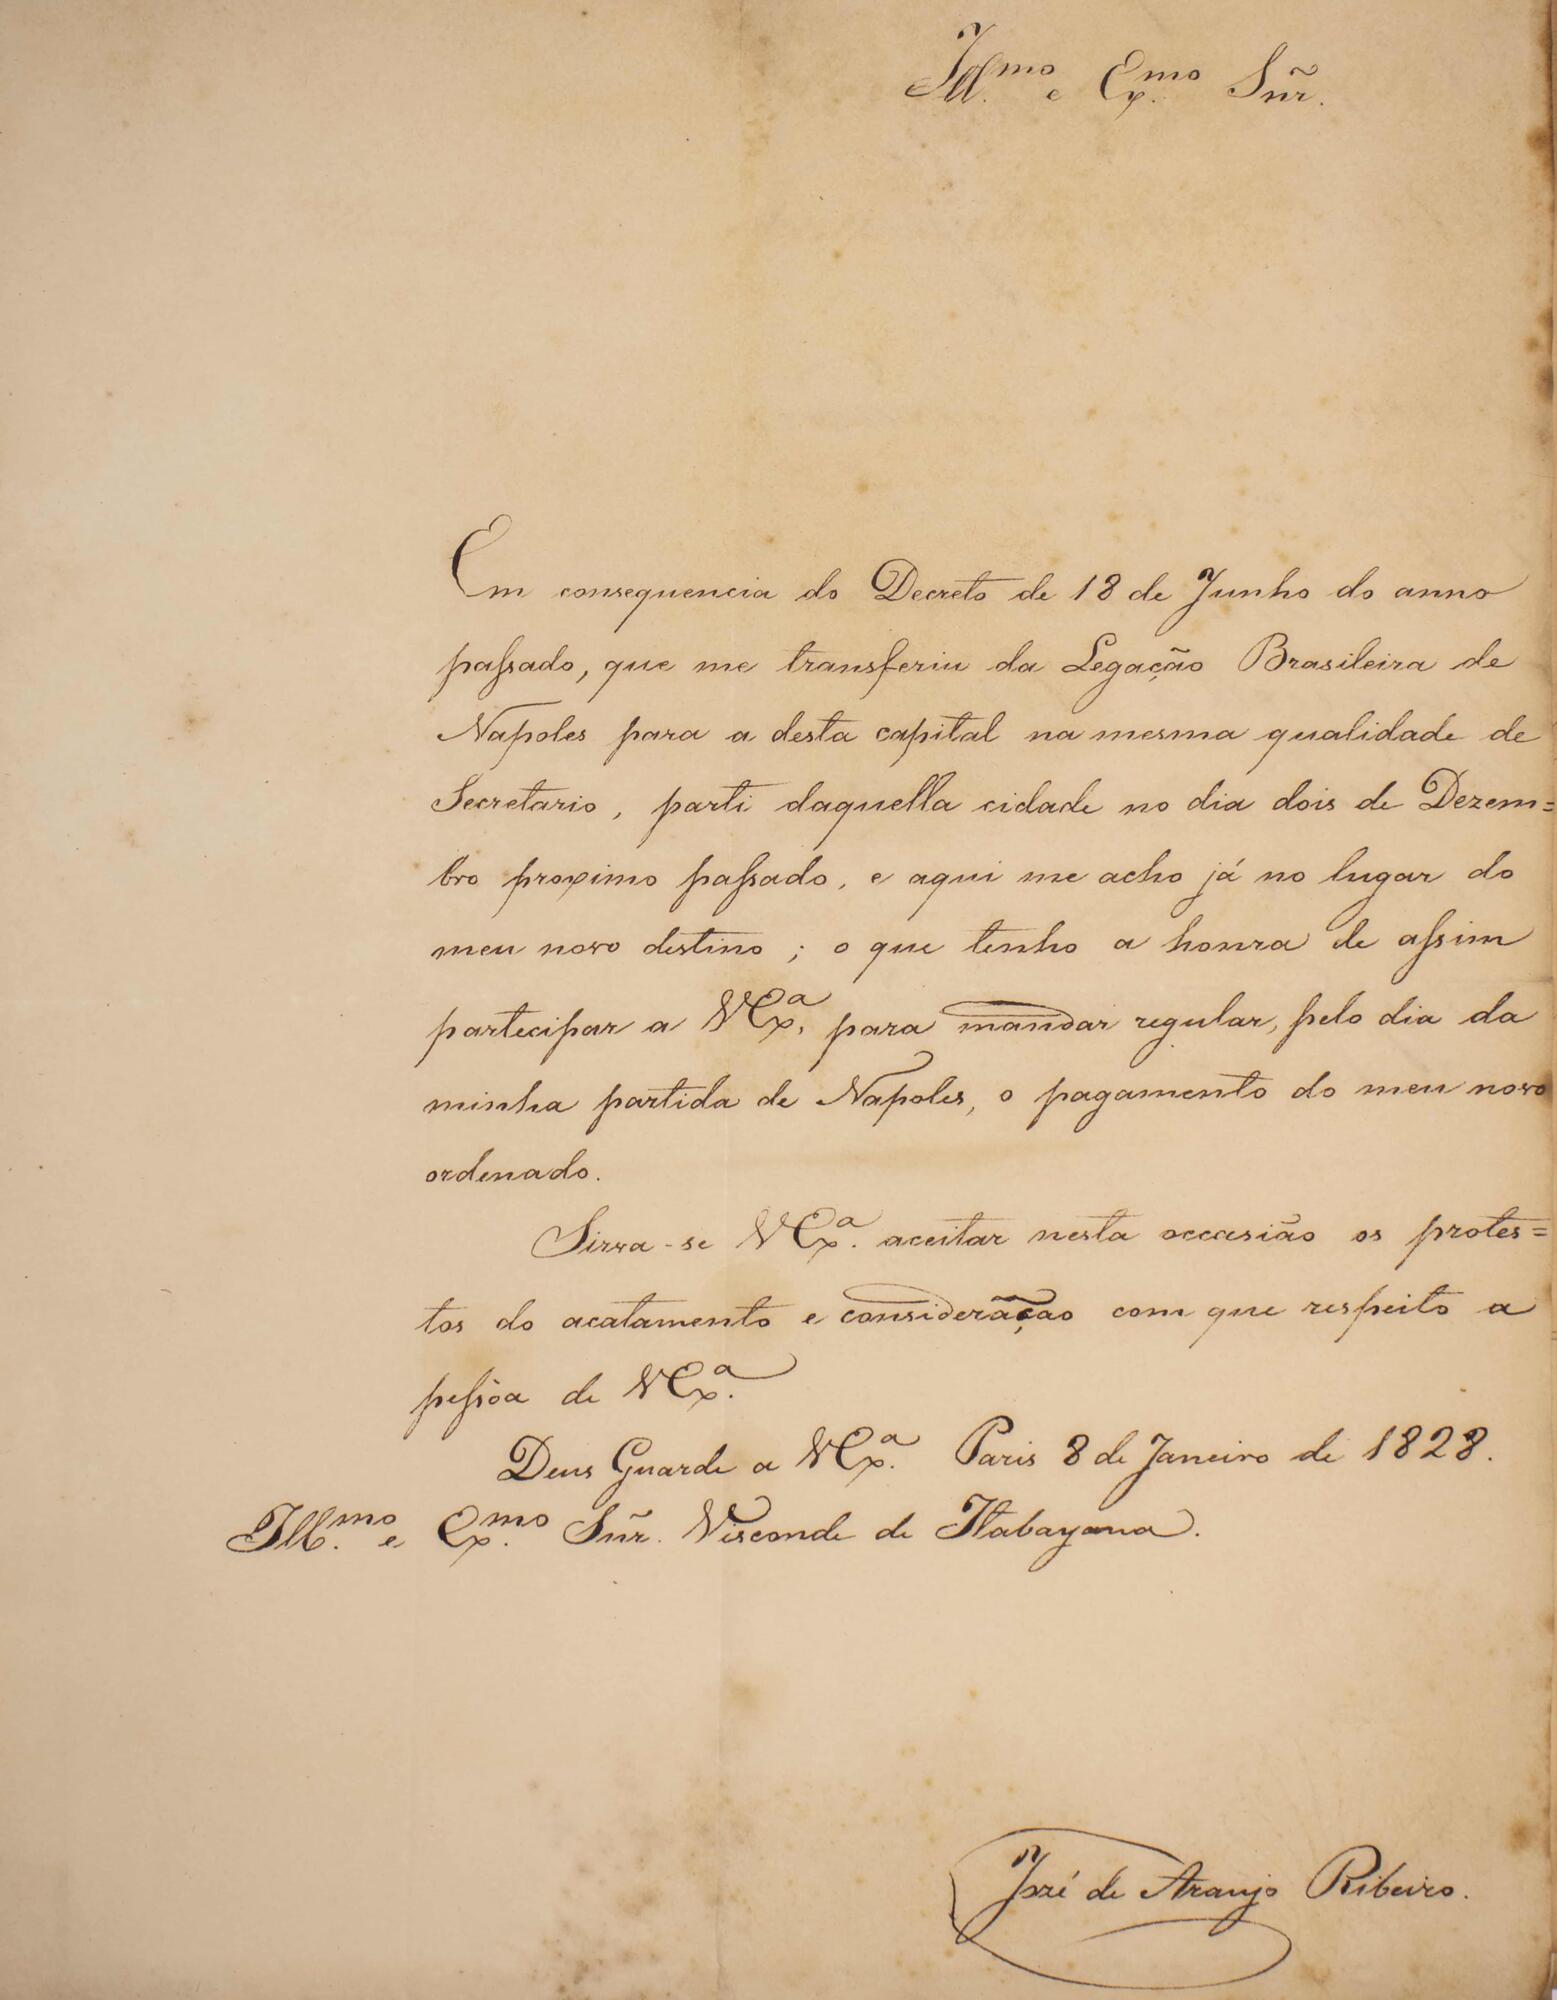 Ill.mo e Ex.mo Sñr.
Em consequencia do Decreto de 18 de Junho do anno
passado, que me transferiu da Legação Brasileira de
Napoles para a desta capital na mesma qualidade de
Secretario, parti daquella cidade no dia dois de Dezem=
bro proximo passado, e aqui me acho já no lugar do
meu novo destino; o que tenho a honra de assim
partecipar a VEx.a para mandar regular, pelo dia da
minha partida de Napoles, o pagamento do meu novo
ordenado.
Sirva-se VEx.a aceitar nesta occasião os protes=
tos do acatamento e consideração com que respeito a
pessôa de VEx.a
Deus Guarde a VEx.a Paris 8 de Janeiro de 1828.
Ill.mo e Ex.mo Sñr. Visconde de Itabayana.
José de Araujo Ribeiro.